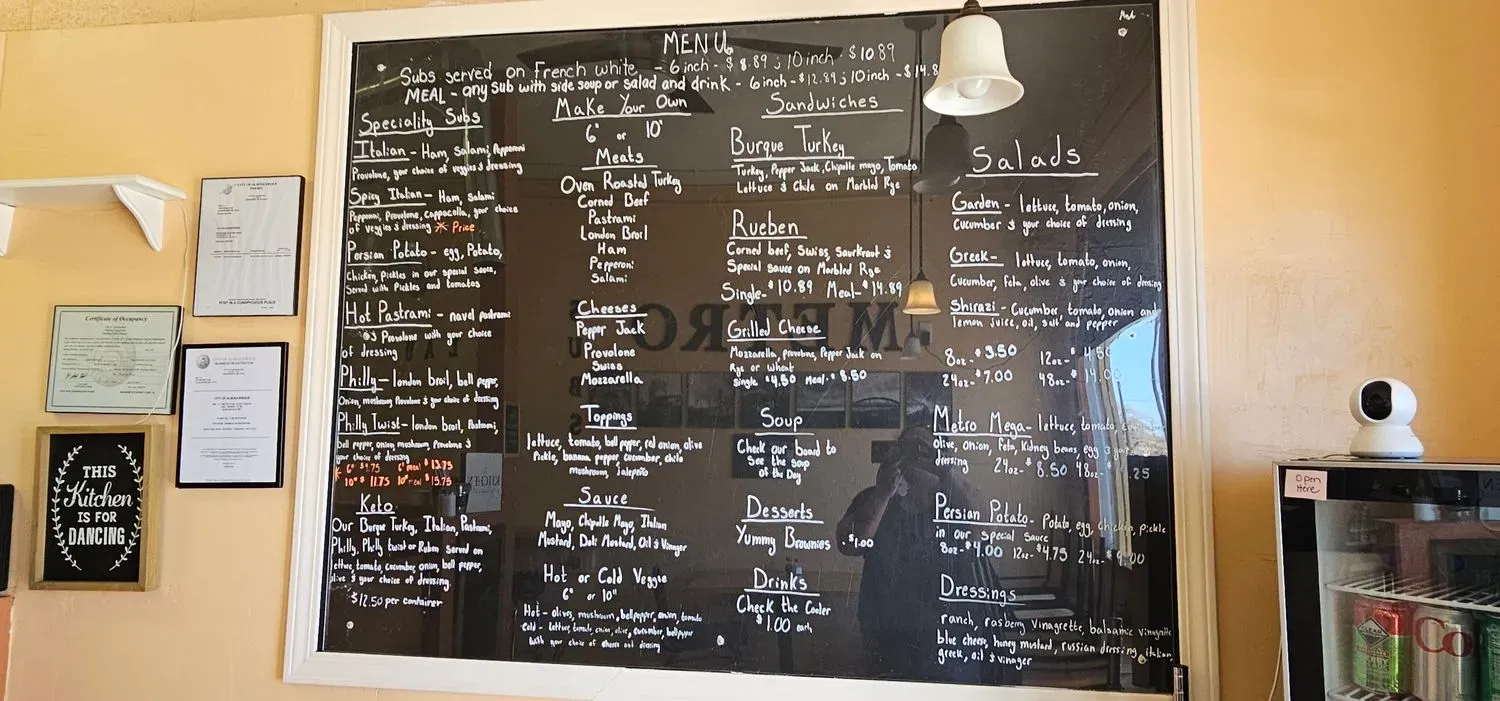 MENU
Subs served on French white - 6 inch - $8.89; 10 inch - $10.89
MEAL - any sub with side soup or salad and drink - 6 inch - $12.89; 10 inch - $14.8
Speciality Subs
Italian - Ham, Salami, Pepperoni
Provolone, your choice of veggies & dressing
Spicy Italian - Ham, Salami
Pepperoni, Provolone, Cappacolla, your choice
of veggies & dressing * Price
Persian Potato - egg, Potato,
Chicken, Pickles in our special sauce,
Served with Pickles and tomatoes
Hot Pastrami - navel pastrami
& Provolone with your choice
of dressing
Philly - london broil, bell pepper,
Onion, mushroom Provolone & your choice of dressing
Philly Twist - london broil, Pastrami,
bell pepper, onion, mushroom, Provolone &
your choice of dressing
* 6" $9.75 6" meal $13.75
10" $11.75 10" meal $15.75
Keto
Our Burque Turkey, Italian, Pastrami,
Philly, Philly twist or Ruben served on
lettuce, tomato, cucumber, onion, bell pepper,
olive & your choice of dressing.
$12.50 per container
Make Your Own
6" or 10"
Meats
Oven Roasted Turkey
Corned Beef
Pastrami
London Broil
Ham
Pepperoni
Salami
Cheeses
Pepper Jack
Provolone
Swiss
Mozzarella
Toppings
lettuce, tomato, bell pepper, red onion, olive
Pickle, banana pepper, cucumber, chile
mushroom, jalepeño
Sauce
Mayo, Chipotle Mayo, Italian
Mustard, Deli Mustard, Oil & Vinager
Hot or Cold Veggie
6" or 10"
Hot - olives, mushroom, bellpepper, onion, tomato
Cold - lettuce, tomato, onion, olive, cucumber, bellpepper
with your choice of cheese and dressing
Sandwiches
Burque Turkey
Turkey, Pepper Jack, Chipotle mayo, Tomato
Lettuce & Chile on Marbled Rye
Rueben
Corned beef, Swiss, Saurkraut &
Special sauce on Marbled Rye
Single - $10.89 Meal - $14.89
Grilled Cheese
Mozzarella, provolone, Pepper Jack on
Rye or Wheat
Single $4.50 Meal - $8.50
Soup
Check our board to
see the soup
of the Day
Desserts
Yummy Brownies - $1.00
Drinks
Check the Cooler
$1.00 each
Salads
Garden - lettuce, tomato, onion,
Cucumber & your choice of dressing
Greek - lettuce, tomato, onion,
Cucumber, feta, olive & your choice of dressing
Shirazi - Cucumber, tomato, onion and
lemon juice, oil, salt and pepper
8oz - $3.50 12oz - $4.50
24oz - $7.00 48oz - $14.00
Metro Mega - lettuce, tomato, cucumber
olive, onion, feta, kidney beans, egg & your
dressing 24oz - $8.50 48oz - 25
Persian Potato - Potato, egg, chicken, pickle
in our special sauce
8oz - $4.00 12oz - $4.75 24oz - $9.00
Dressings
ranch, rasberry vinagrette, balsamic vinagrette
blue cheese, honey mustard, russian dressing, italian,
greek, oil & vinager
METRO
CITY OF ALBUQUERQUE
POST IN A CONSPICUOUS PLACE
Certificate of Occupancy
CITY OF ALBUQUERQUE
BUSINESS REGISTRATION
CITY OF ALBUQUERQUE
THIS
Kitchen
IS FOR
DANCING
Open
Here
Co